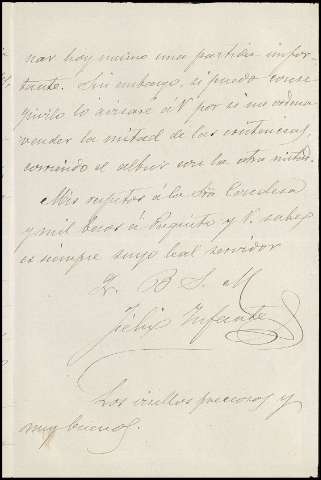 nar hoy mismo una partida impor-
tante. Sin embargo, si puedo conse-
guirlo lo avisaré á V. por si me ordena
vender la mitad de las existencias,
corriendo el albur con la otra mitad.
Mis respetos á la Sra Condesa
y mil besos á Paquito y V. sabe
es siempre suyo leal servidor
Q. B. S. M
Félix Infante
Los preciosos y
muy buenos.